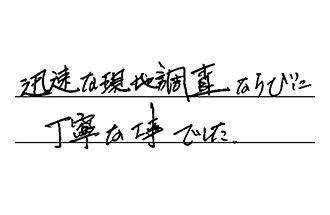 迅速な現地調査ならびに
丁寧な工事でした。